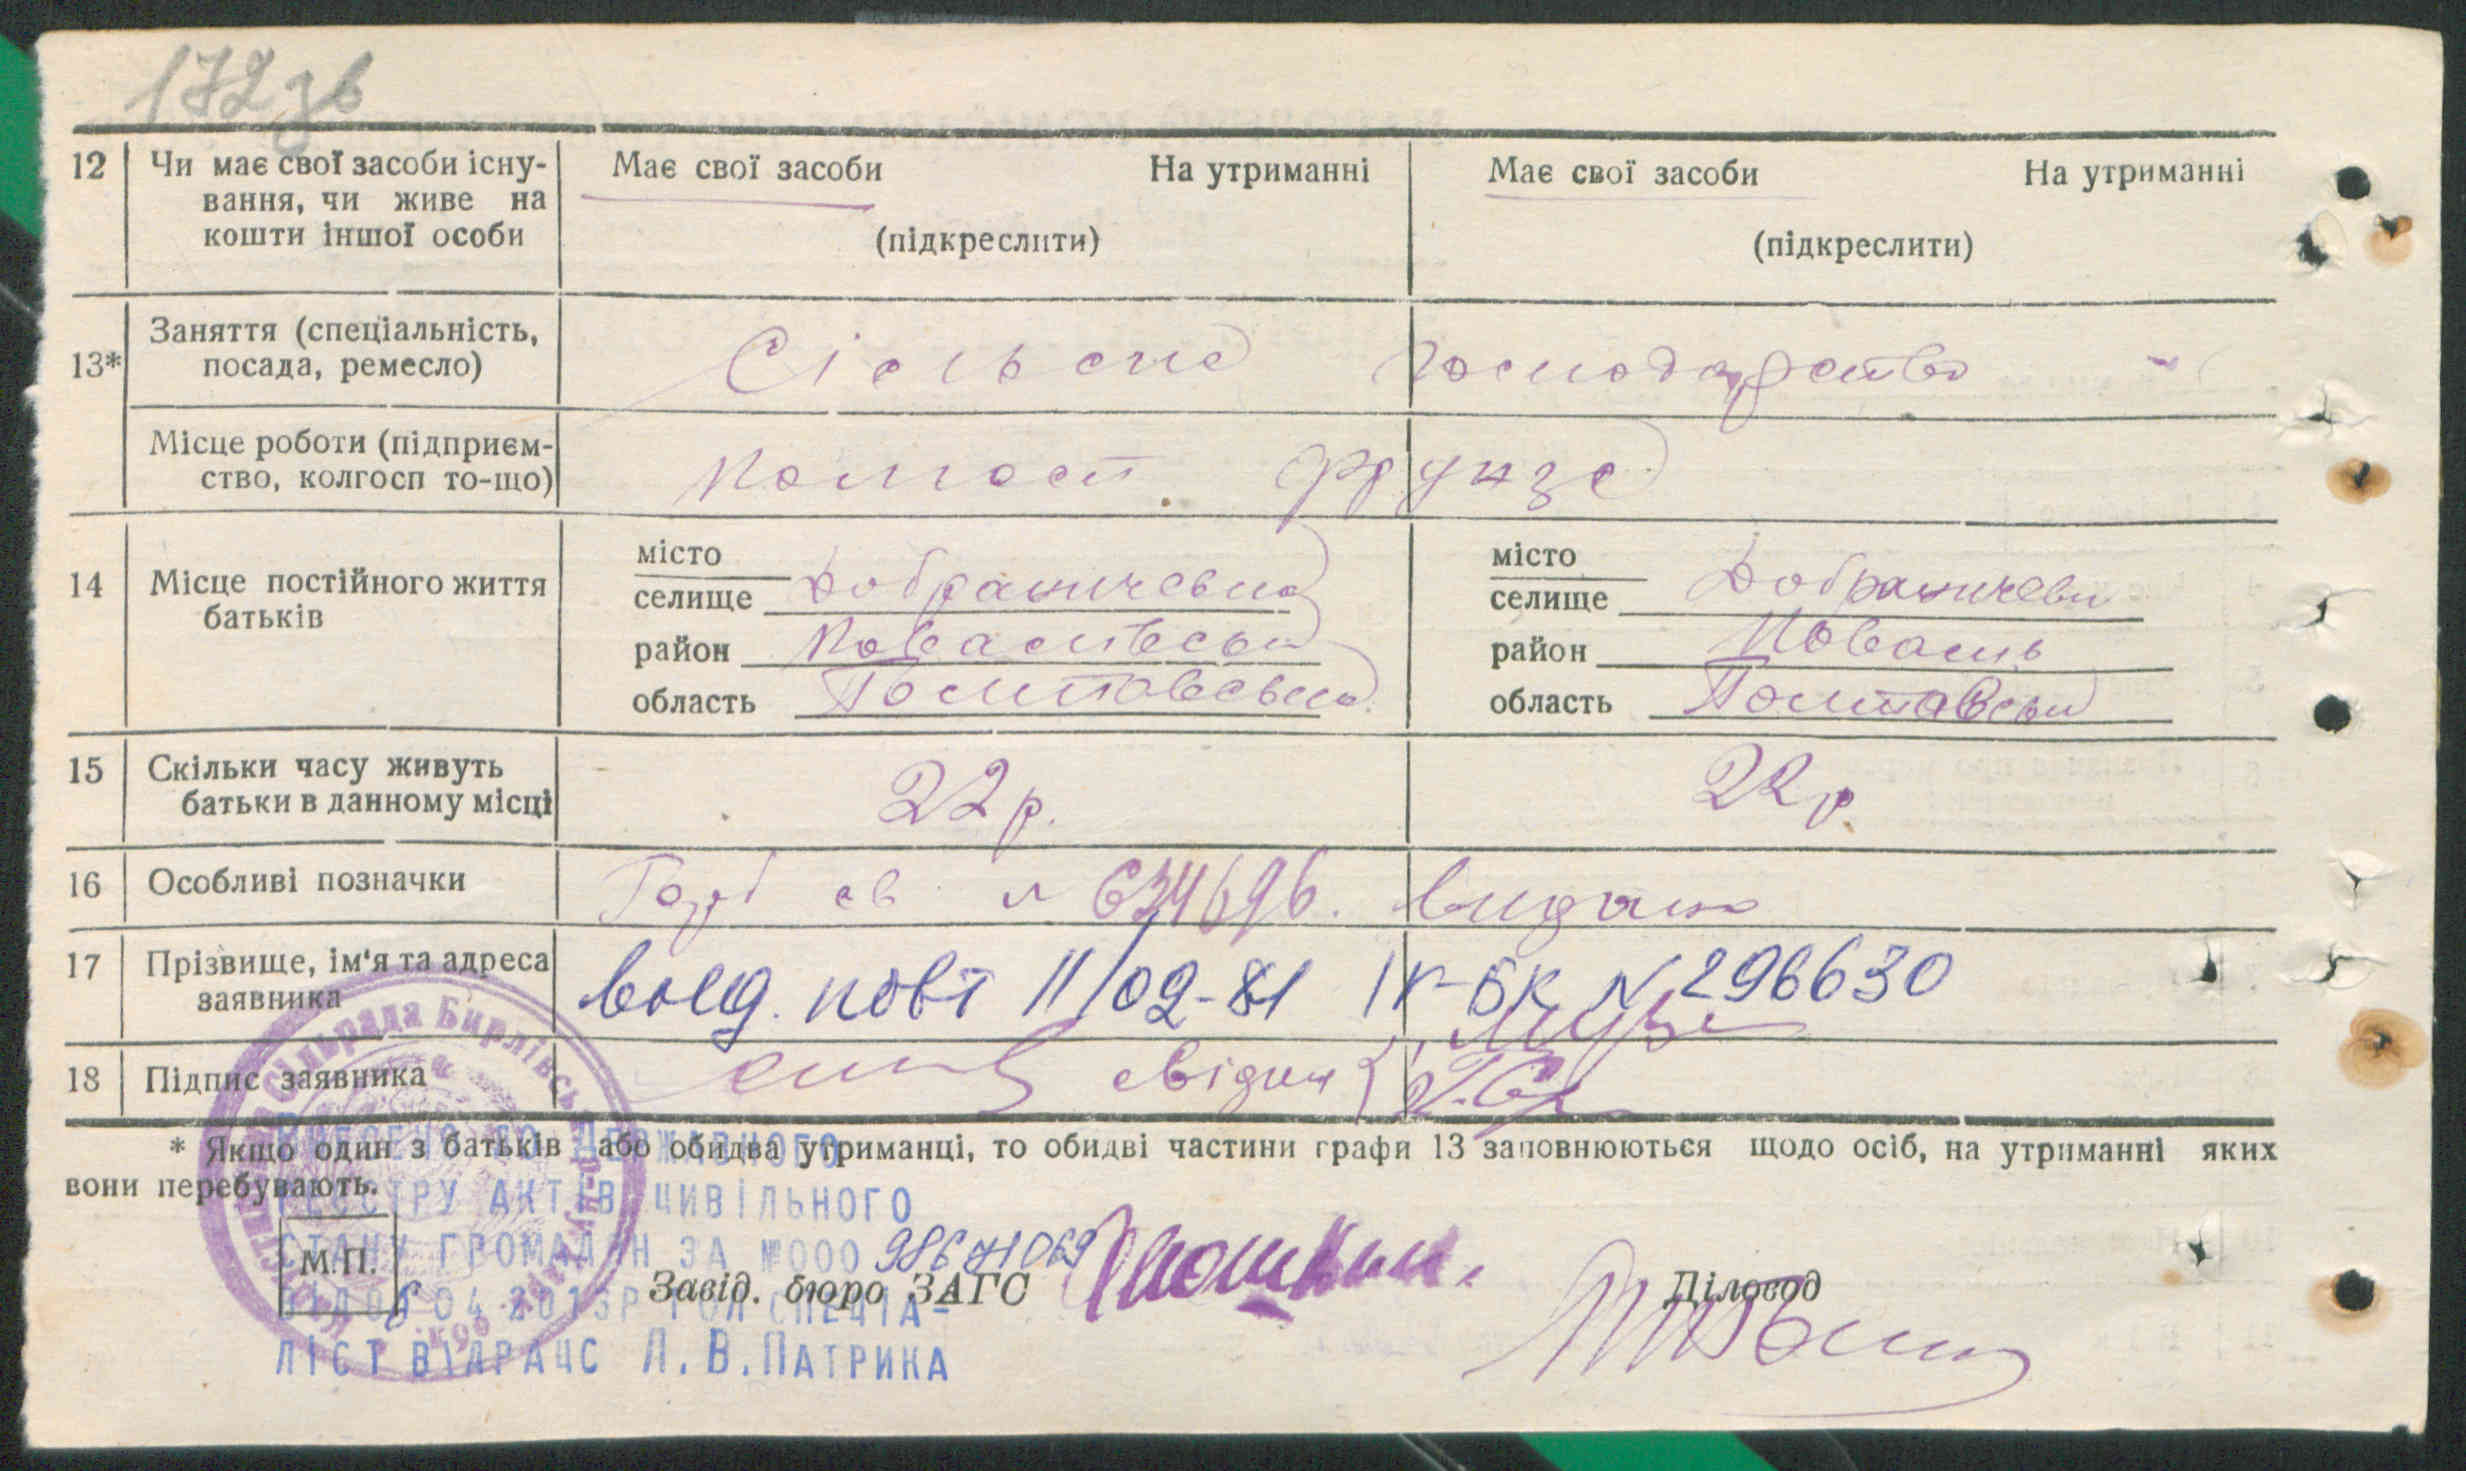 172 зв
12 Чи має свої засоби існу-
вання, чи живе на
кошти іншої особи
Має свої засоби На утриманні
(підкреслити)
Має свої засоби На утриманні
(підкреслити)
13* Заняття (спеціальність,
посада, ремесло)
Сільське господарство
Місце роботи (підприєм-
ство, колгосп то-що)
Колгосп Фрунзе
14 Місце постійного життя
батьків
місто
селище Добраничевка
район
область Полтавська
місто
селище Добраничевк
район Коваль
область Полтавськ
15 Скільки часу живуть
батьки в данному місці
22 р.
22 р.
16 Особливі позначки
св 634696. видано
17 Прізвище, ім'я та адреса
заявника
повт 11/02-81 IV-БК N 296630
18 Підпис заявника
свідки
* Якщо один з батьків або обидва утриманці, то обидві частини графи 13 заповнюються щодо осіб, на утриманні яких
вони перебувають.
Сільрада Бирлівськ
ДЕРЖАВНОГО
РЕЄСТРУ АКТІВ ЦИВІЛЬНОГО
СТАНУ ГРОМАДЯН ЗА №000
М.П.
Завід. бюро ЗАГС
Діловод
СПЕЦІА-
ЛІСТ ВІДРАЦС Л.В.ПАТРИКА